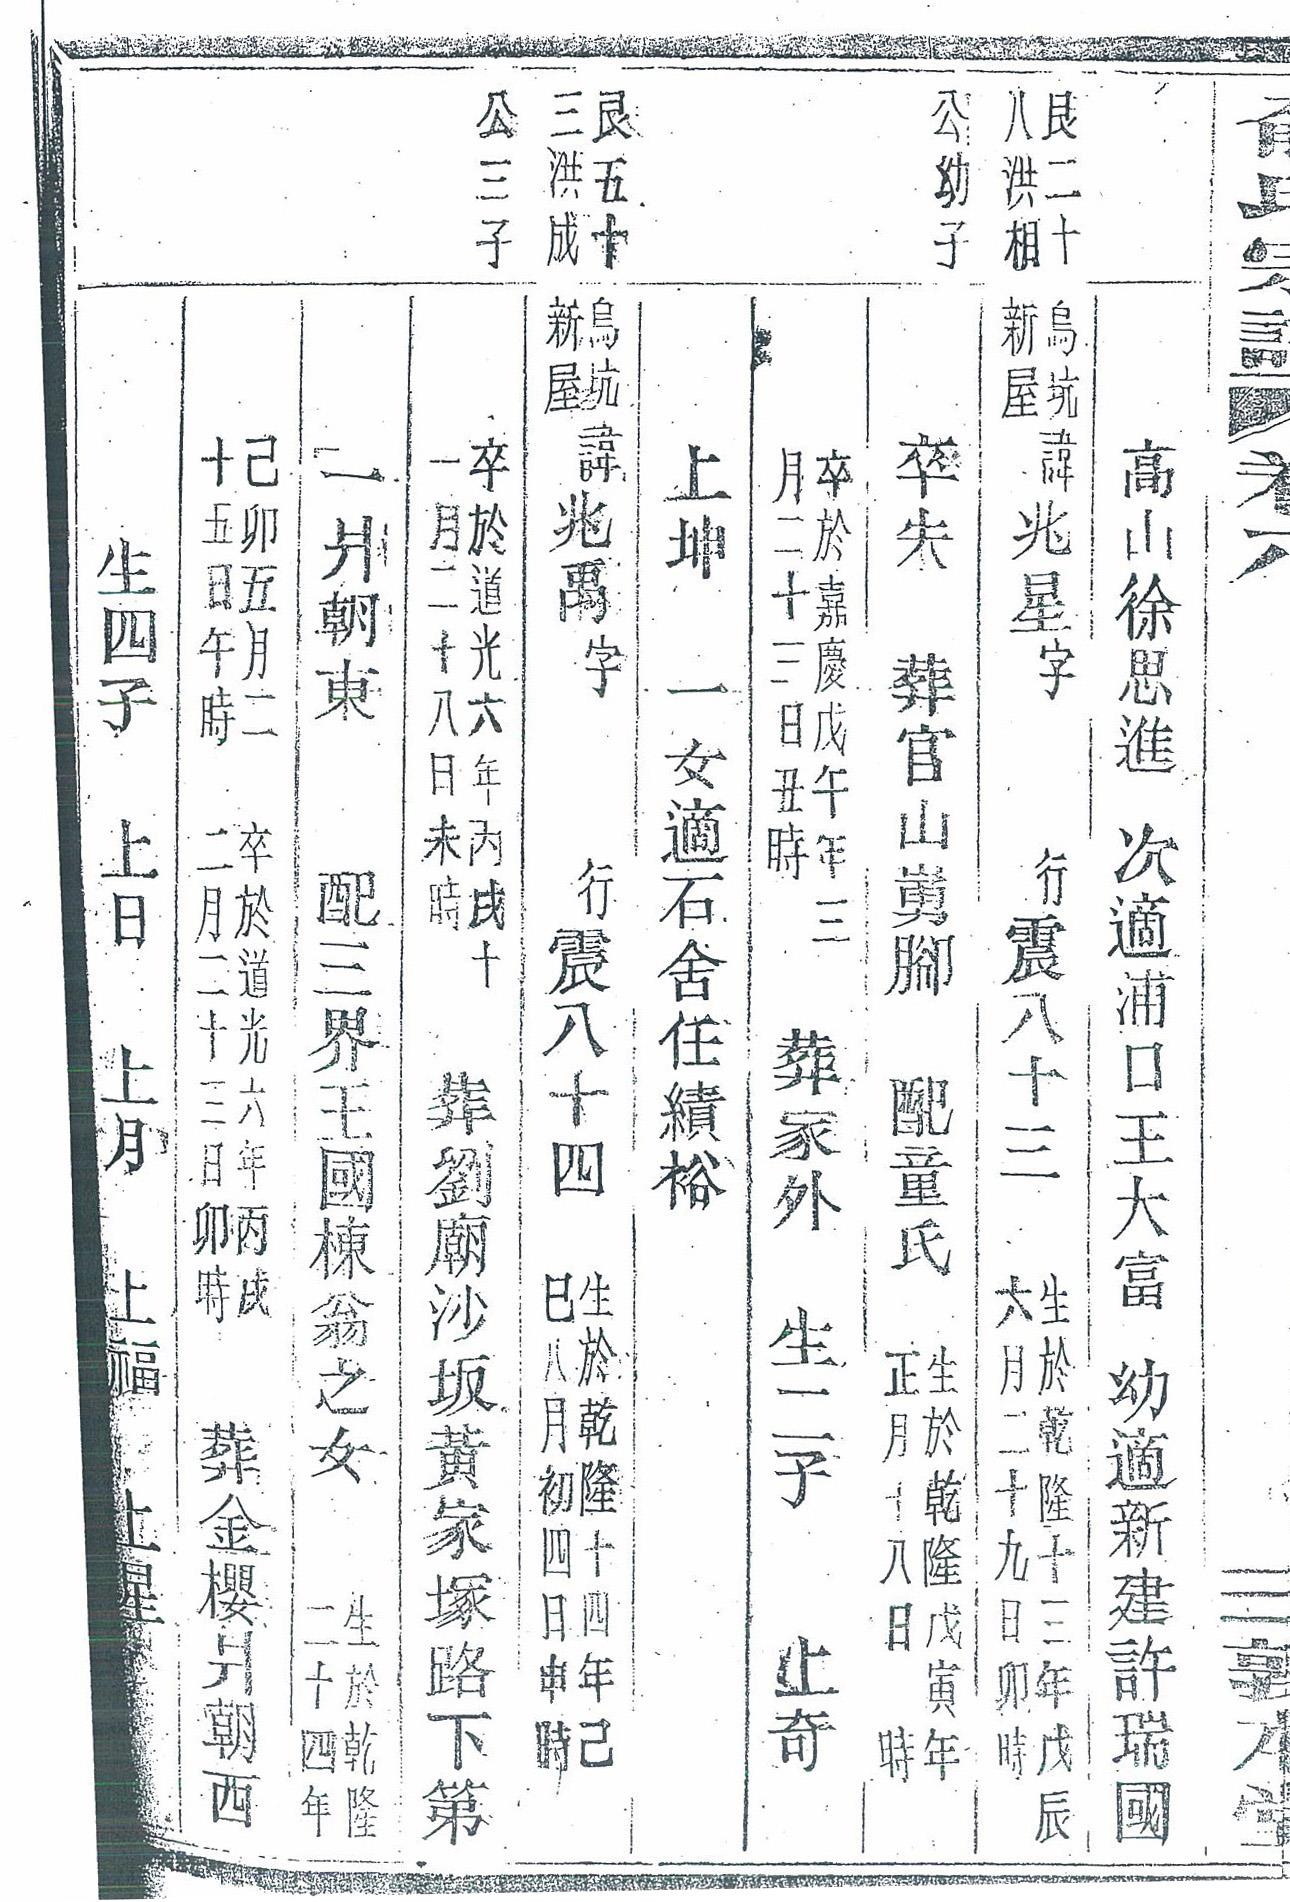 俞氏宗譜 卷六 敦本堂
高山徐思進 次適浦口王大富 幼適新建許瑞國
艮二十
八洪相
公幼子
烏坑
新屋
諱兆星字 行震八十三
生於乾隆十三年戊辰
六月二十九日卯時
卒失 葬官山嶴腳 配童氏
生於乾隆戊寅年
正月十八日 時
卒於嘉慶戊午年三
月二十三日丑時
葬家外 生二子 上奇
上坤 一女適石舍任績裕
艮五十
三洪成
公三子
烏坑
新屋
諱兆禹字 行震八十四
生於乾隆十四年己
巳八月初四日申時
卒於道光六年丙戌十
一月二十八日未時
葬劉廟沙坂黃家塚路下第
一爿朝東 配三界王國棟翁之女
生於乾隆
二十四年
己卯五月二
十五日午時
卒於道光六年丙戌
二月二十三日卯時
葬金櫻爿朝西
生四子 上日 上月 上福 上星